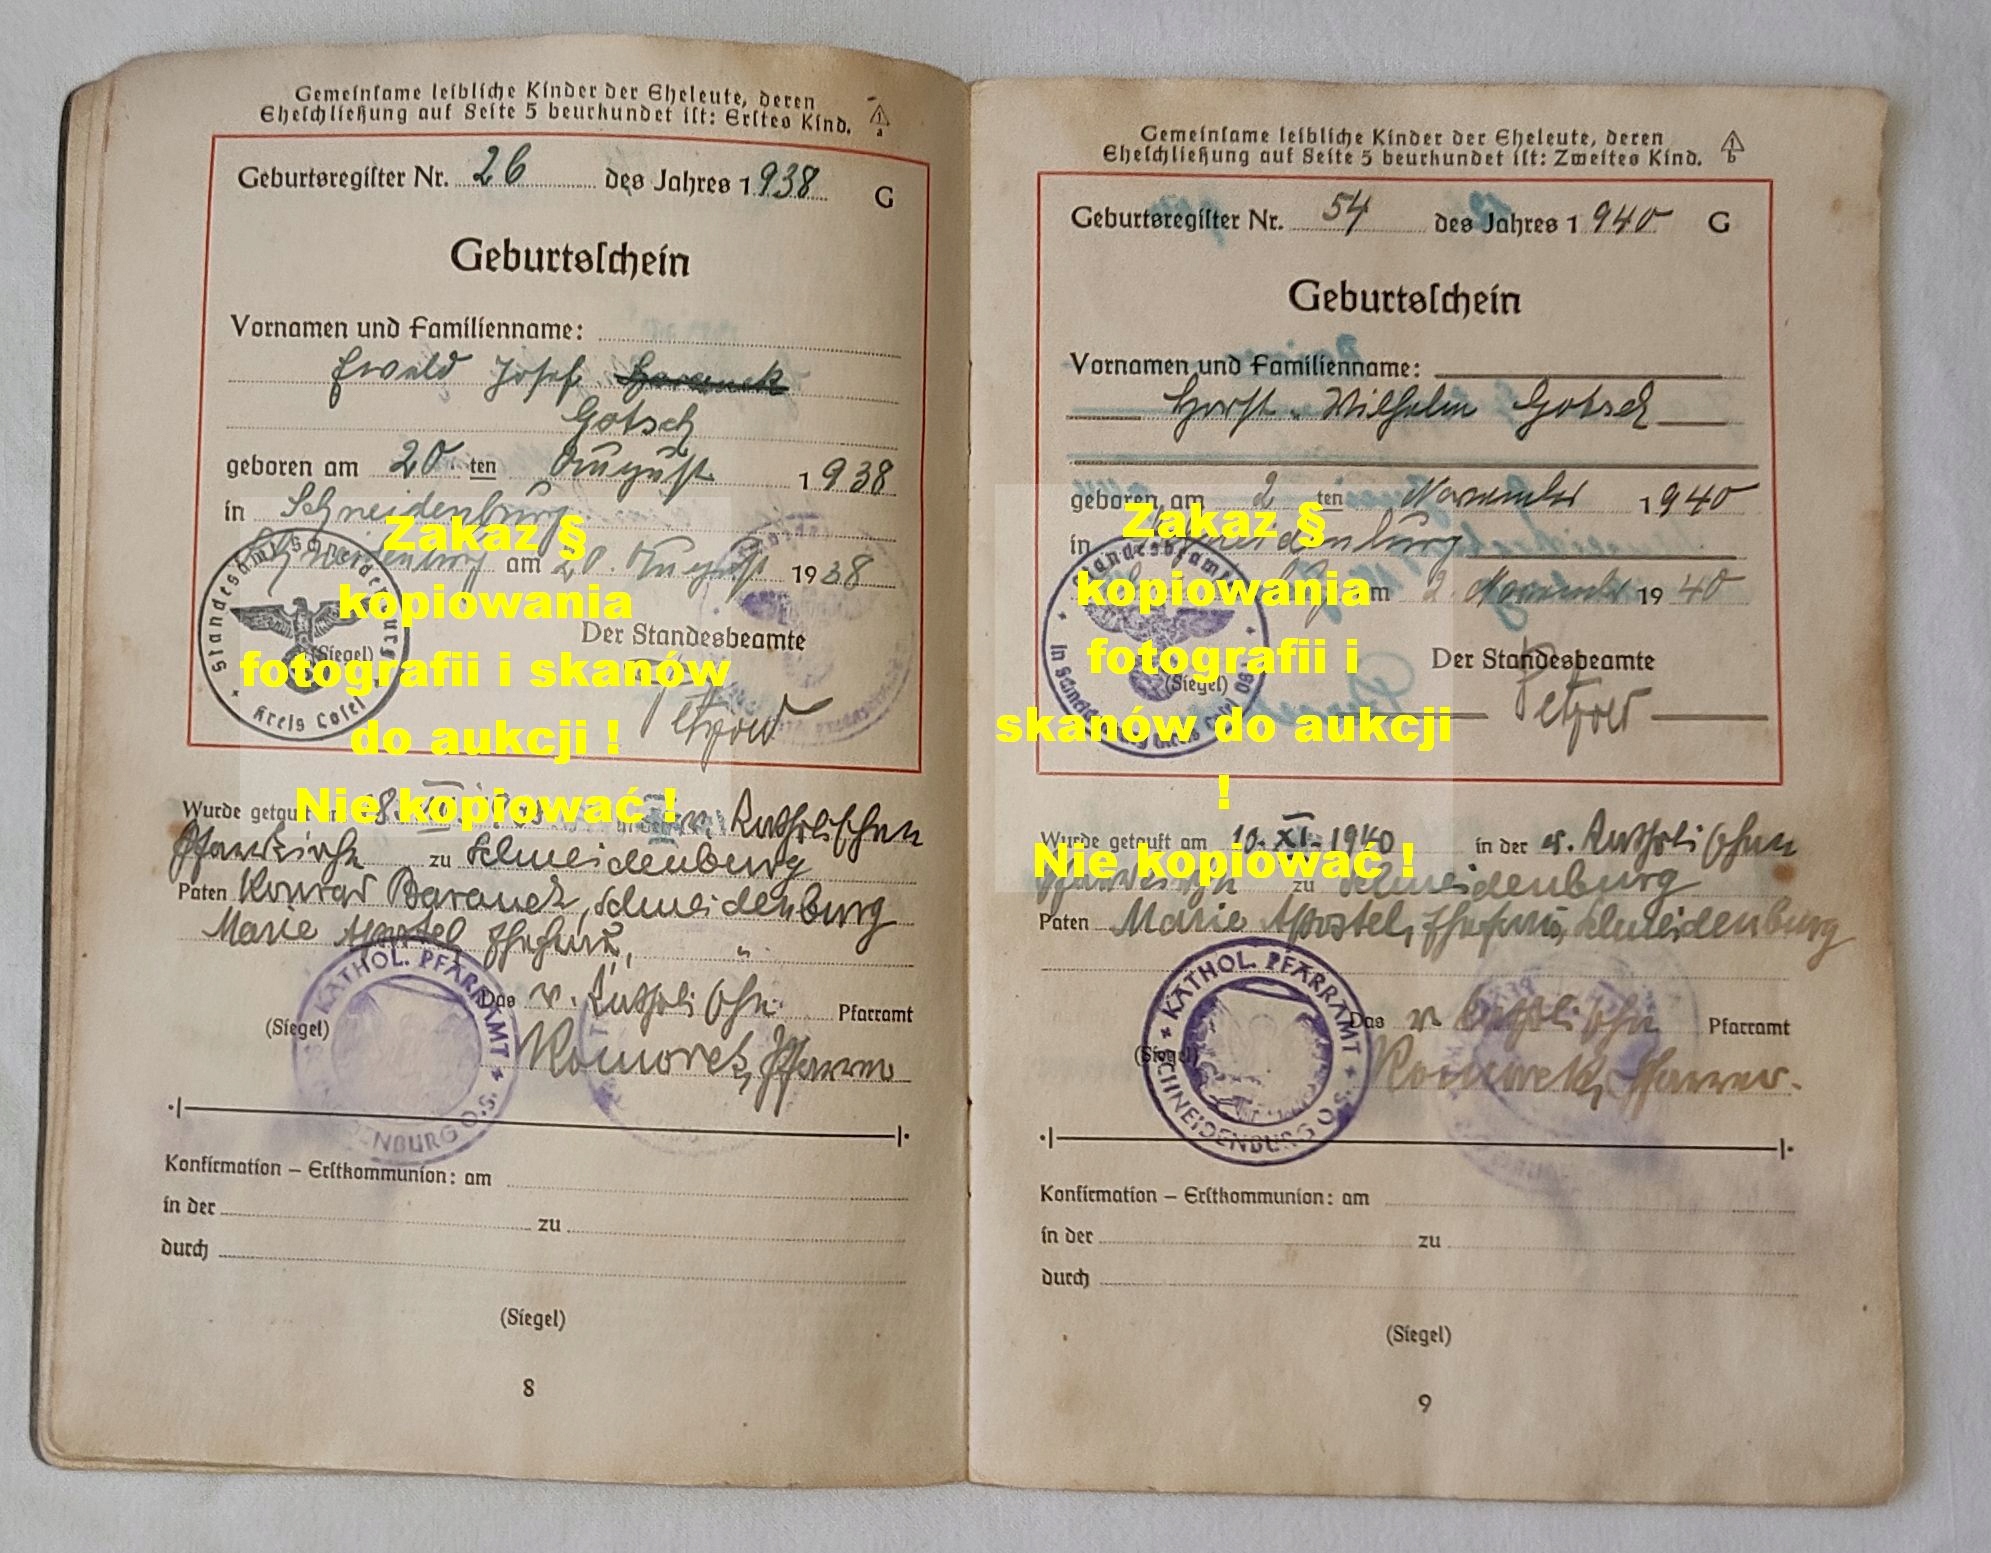 Gemeinsame leibliche Kinder der Eheleute, deren
Eheschließung auf Seite 5 beurkundet ist: Erstes Kind.
1
a
Geburtsregister Nr. 26 des Jahres 1938
G
Geburtsschein
Vornamen und Familienname:
Ewald Josef
Gotsch
geboren am 20. ten August 1938
in Schneidenburg
Schneidenburg am 20. August 1938
Standesamt Schneidenburg
Kreis Cosel
(Siegel)
Der Standesbeamte
Petzold
Zakaz §
kopiowania
fotografii i skanów
do aukcji !
Nie kopiować !
Wurde getauft 28. in der r. Katholischen
Pfarrkirche zu Schneidenburg
Paten Konrad Baranek, Schneidenburg
Marie Apostel, Ehefrau, "
Das r. Katholische Pfarramt
(Siegel)
Komorek, Pfarrer
KATHOL. PFARRAMT
SCHNEIDENBURG O.S.
Konfirmation – Erstkommunion: am
in der zu
durch
(Siegel)
8
Gemeinsame leibliche Kinder der Eheleute, deren
Eheschließung auf Seite 5 beurkundet ist: Zweites Kind.
1
b
Geburtsregister Nr. 54 des Jahres 1940
G
Geburtsschein
Vornamen und Familienname:
Horst Wilhelm Gotsch
geboren am 2 ten November 1940
in Schneidenburg
am 2. November 1940
Der Standesbeamte
(Siegel)
Petzold
Zakaz §
kopiowania
fotografii i
skanów do aukcji
!
Nie kopiować !
Wurde getauft am 10. XI. 1940 in der r. Katholischen
Pfarrkirche zu Schneidenburg
Paten Marie Apostel, Ehefrau, Schneidenburg
Das r. Katholische Pfarramt
(Siegel)
Komorek, Pfarrer.
KATHOL. PFARRAMT
SCHNEIDENBURG O.S.
Konfirmation – Erstkommunion: am
in der zu
durch
(Siegel)
9